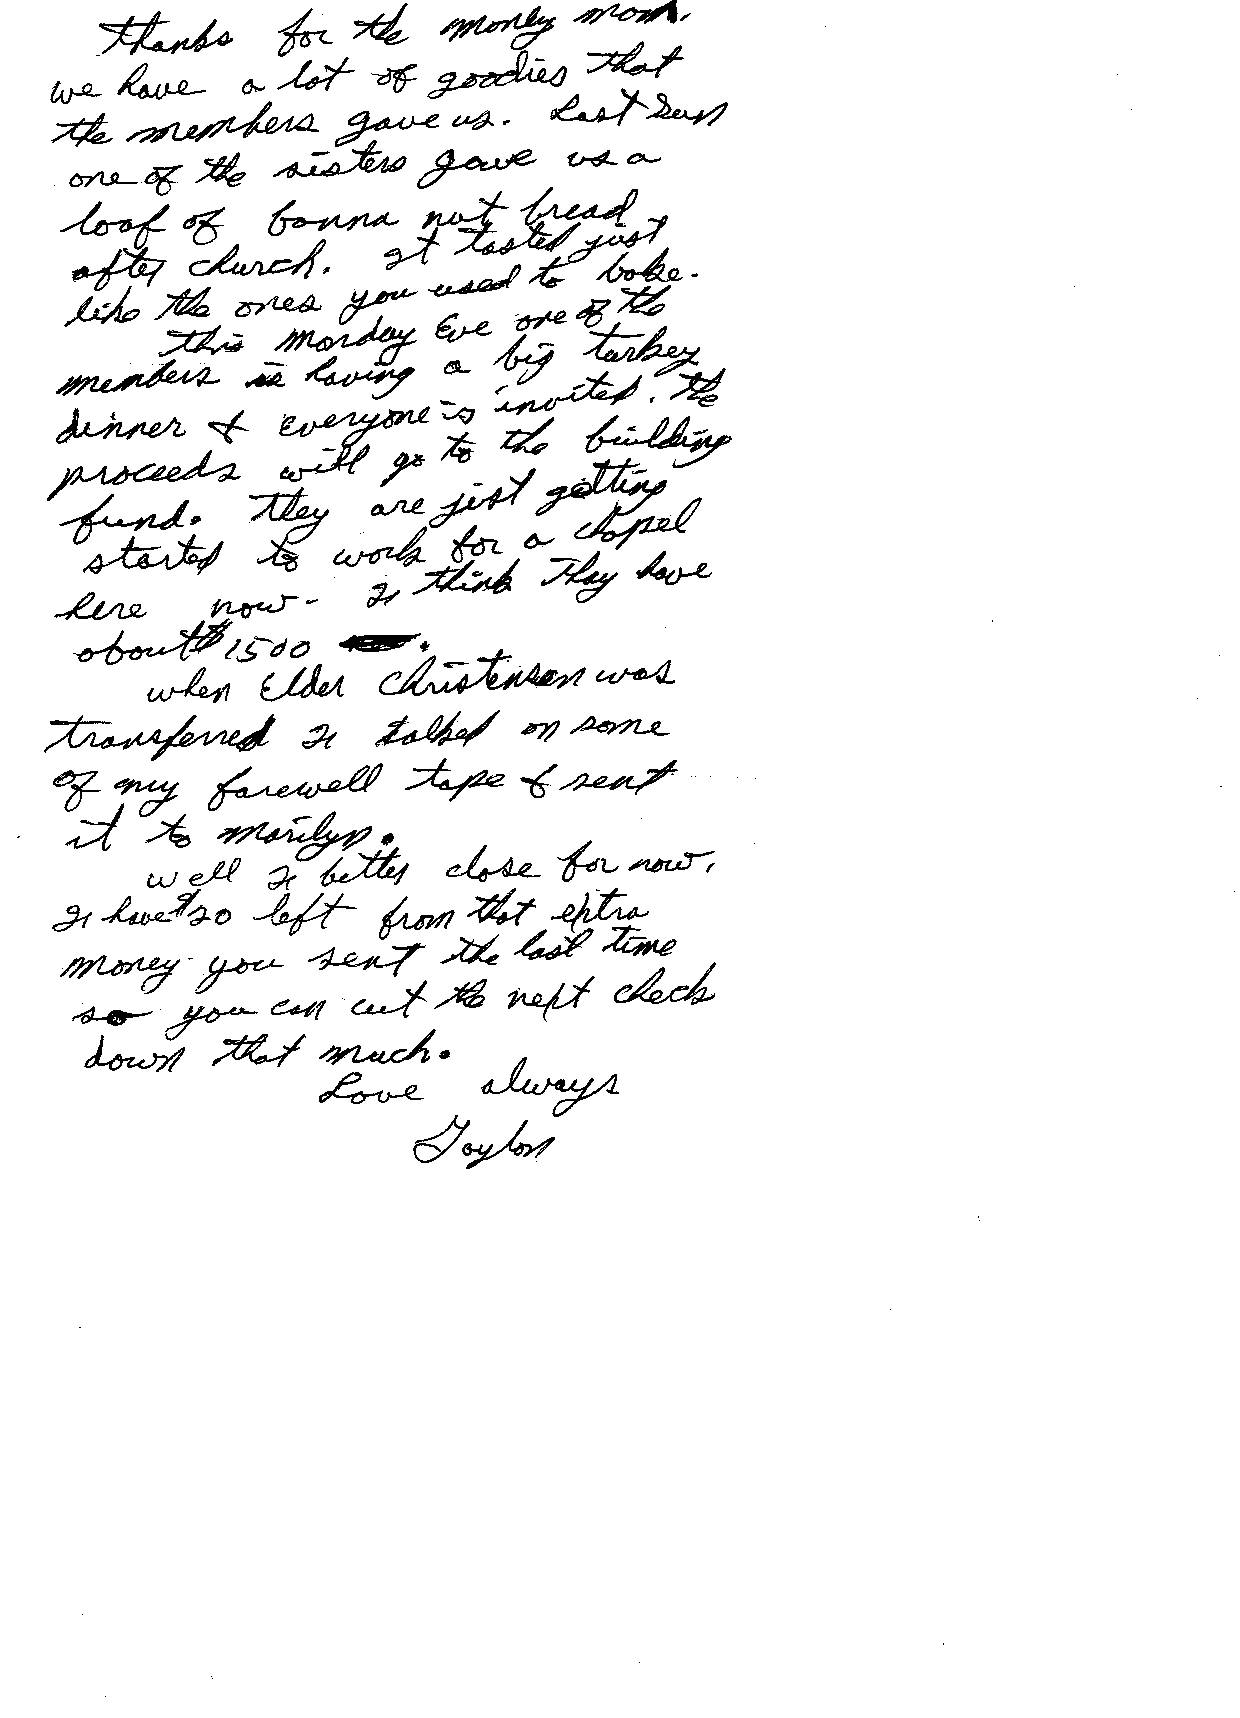 thanks for the money mom.
we have a lot of goodies that
the members gave us. Last Sun
one of the sisters gave us a
loaf of banna nut bread
after church. It tasted just
like the ones you used to bake.
this Monday Eve one of the
members is having a big turkey
dinner & everyone is invited. the
proceeds will go to the building
fund. they are just getting
started to work for a chapel
here now - I think they have
about $1500 .
when Elder Christensen was
transferred I talked on some
of my farewell tape & sent
it to Marilyn.
well I better close for now,
I have $20 left from that extra
money you sent the last time
so you can cut the next check
down that much.
Love always
Taylor